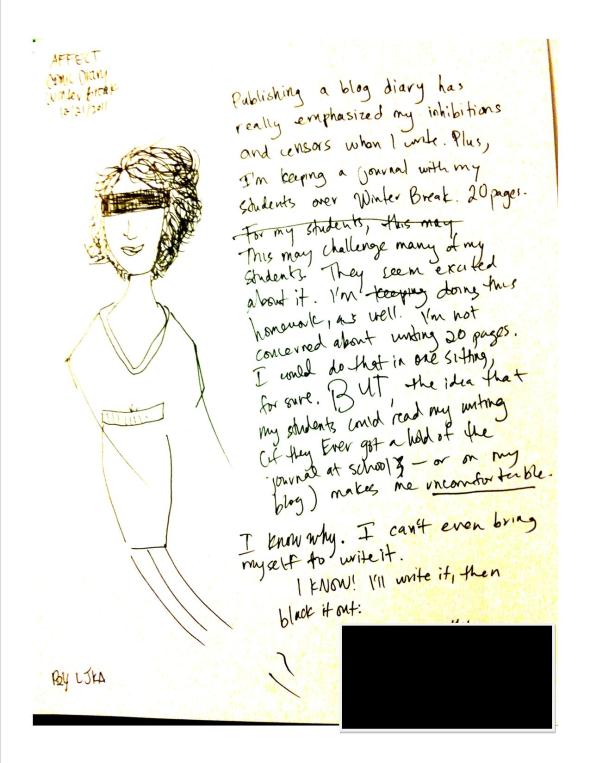 AFFECT
Comic Diary
Winter Break
12/21/2011
Publishing a blog diary has
really emphasized my inhibitions
and censors when I write. Plus,
I'm keeping a journal with my
students over Winter Break. 20 pages.
For my students, this may
This may challenge many of my
students. They seem excited
about it. I'm keeping doing this
homework, as well. I'm not
concerned about writing 20 pages.
I could do that in one sitting,
for sure. BUT, the idea that
my students could read my writing
(if they Ever got a hold of the
journal at school – or on my
blog) makes me uncomfortable.
I know why. I can't even bring
myself to write it.
I KNOW! I'll write it, then
black it out:
By LJKA